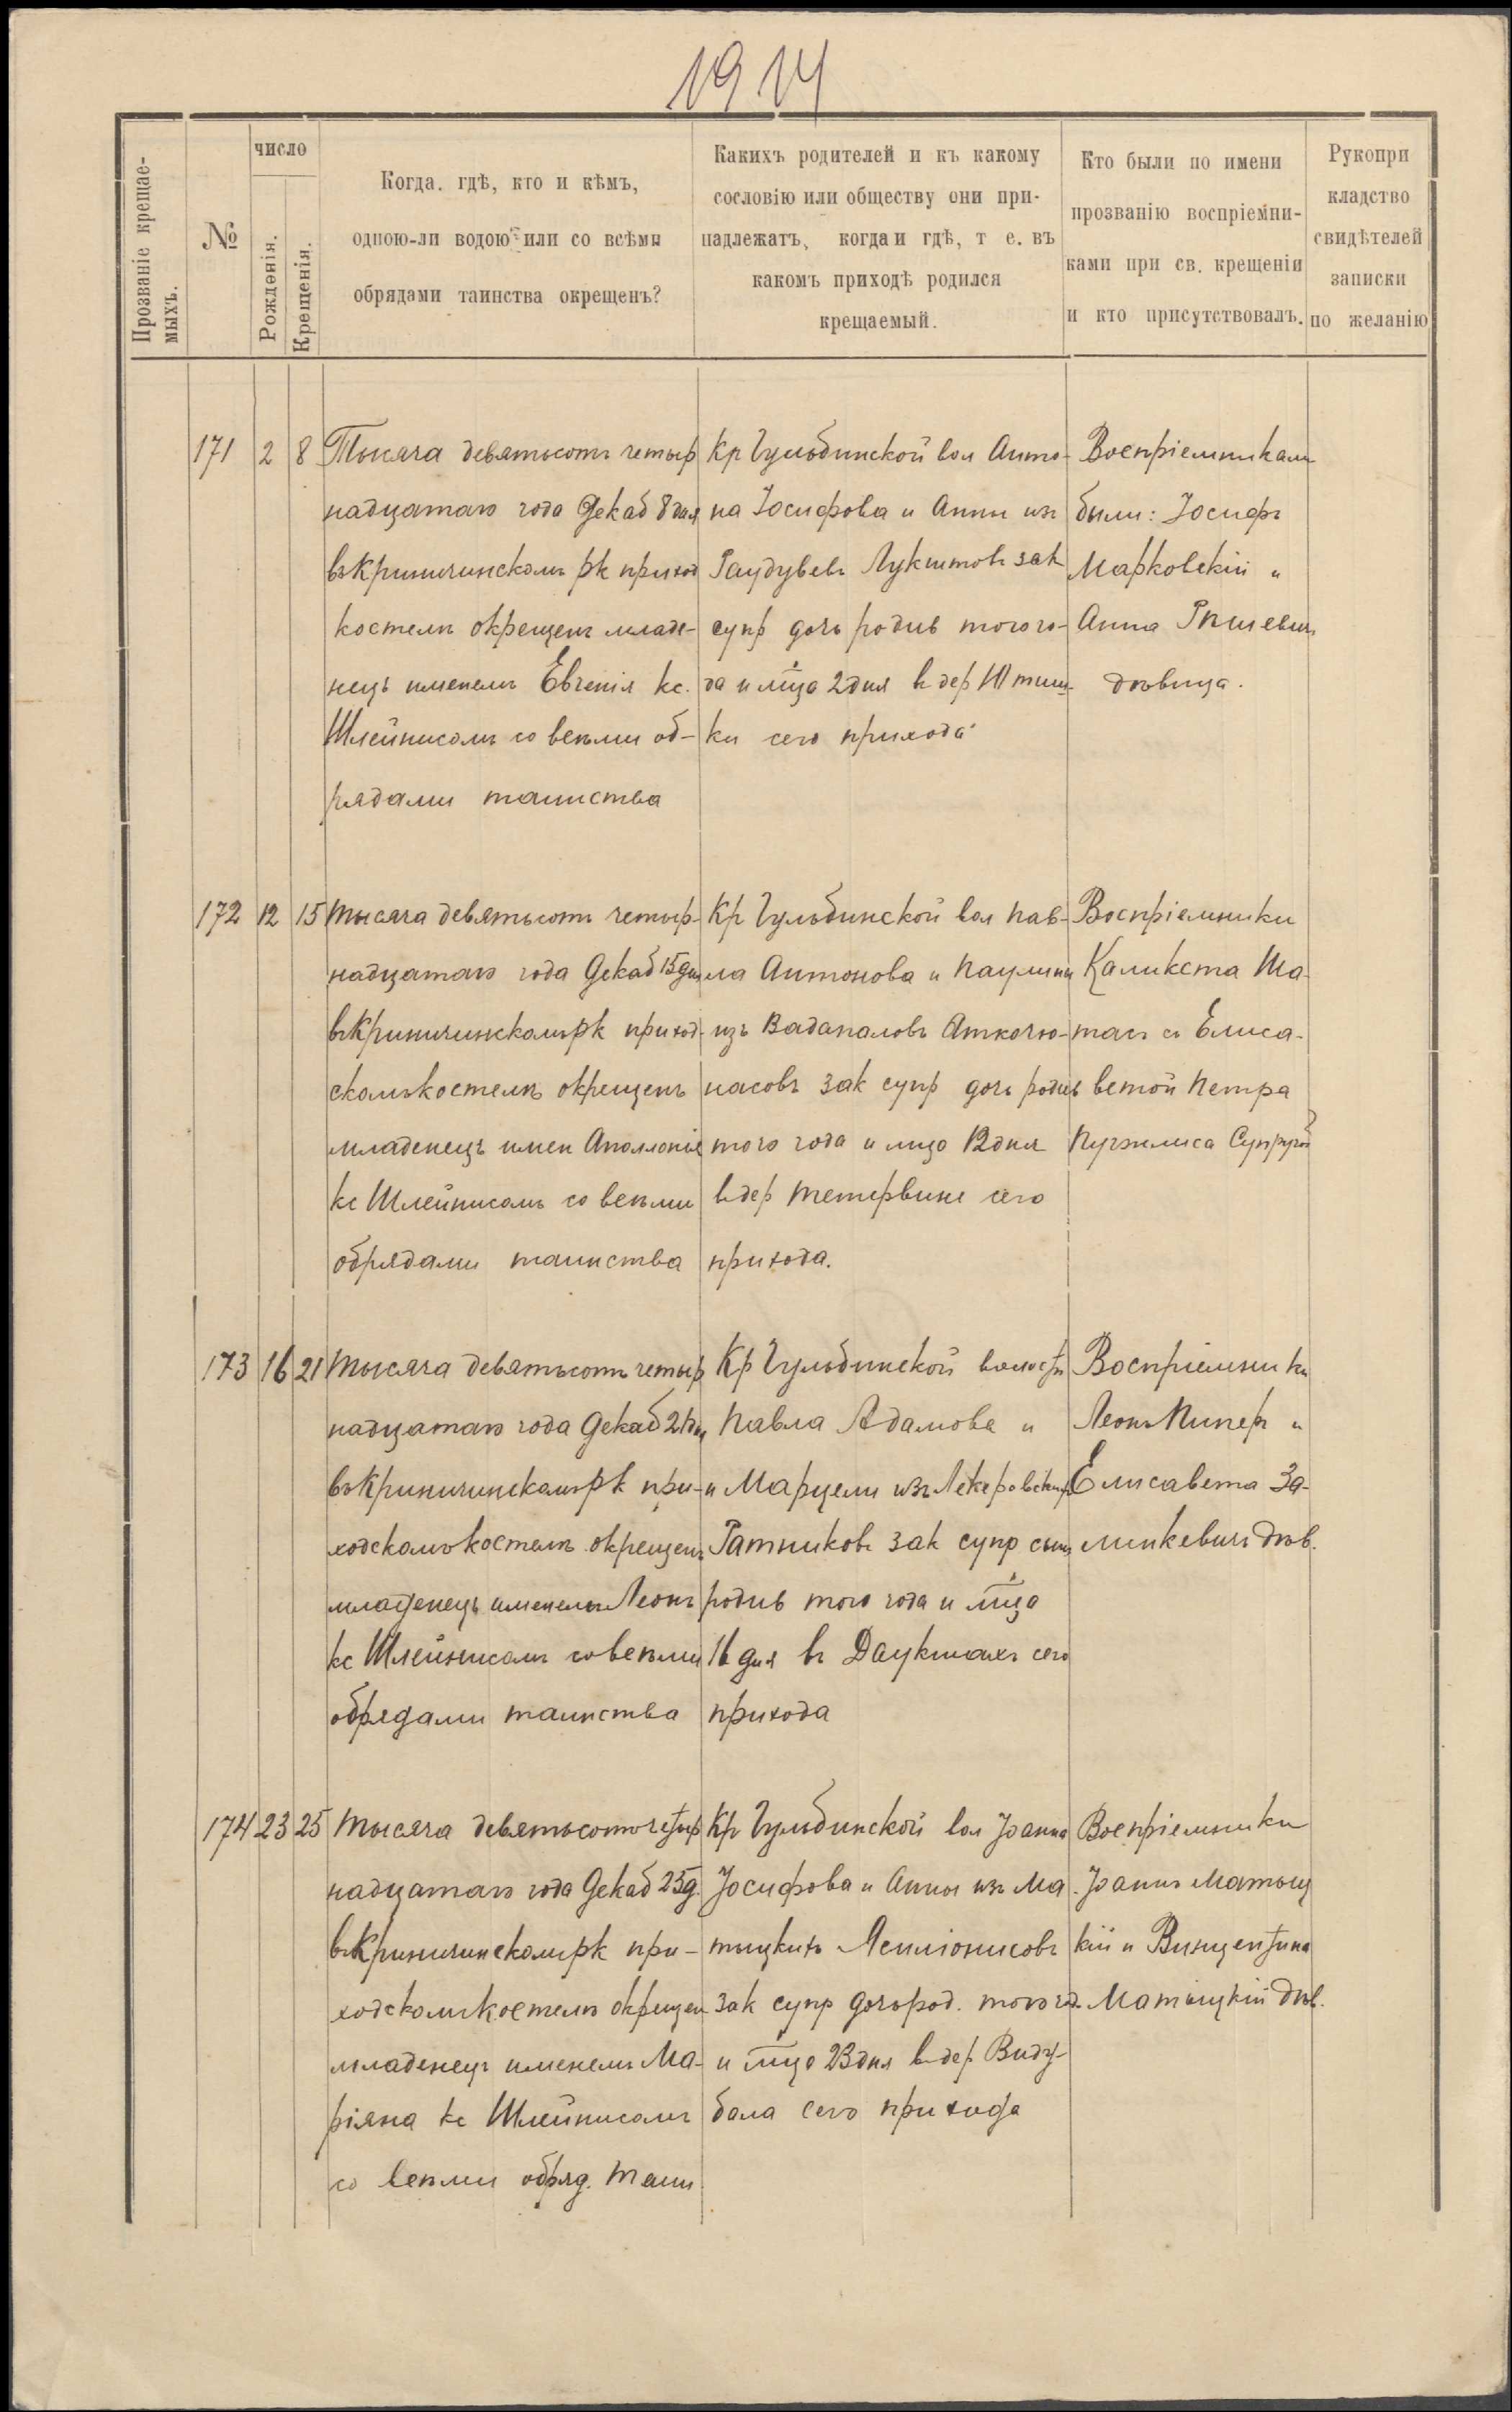 1914
Прозваніе крещае-
мыхъ.
№
число
Рожденія.
Крещенія.
Когда. гдѣ, кто и кѣмъ,
одною-ли водою или со всѣми
обрядами таинства окрещенъ?
Какихъ родителей и къ какому
сословію или обществу они при-
надлежатъ, когда и гдѣ, т е. въ
какомъ приходѣ родился
крещаемый.
Кто были по имени
прозванію воспріемни-
ками при св. крещеніи
и кто присутствовалъ.
Рукопри
кладство
свидѣтелей
записки
по желанію
171 2 8
Тысяча девятьсотъ четыр
надцатаго года Декаб 8 дня
въ Криничинскомъ рк приход
костелѣ окрещенъ младе-
нецъ именемъ Евгенія кс.
Шлейнисомъ со всѣми об-
рядами таинства
Кр Гульбинской вол Анто-
на Іосифова и Анны изъ
Гаудувевъ Лукштовъ зак
супр дочь родив того го-
да и мца 2 дня в дер
ки сего прихода
Воспріемниками
были: Іосифъ
Марковскій и
Анна
дѣвица.
172 12 15
Тысяча девятьсотъ четыр-
надцатаго года Декаб 15 дня
въ Криничинскомъ рк приход-
скомъ костелѣ окрещенъ
младенецъ имен Аполлонія
кс Шлейнисомъ со всѣми
обрядами таинства
Кр Гульбинской вол Пав-
ла Антонова и Паулины
изъ Вадапаловъ Аткочю-
насовъ зак супр дочь родив
того года и мца 12 дня
в дер Тетервине сего
прихода.
Воспріемники
Каликста Ша-
тасъ съ Елиса-
ветой Петра
Пугжлиса Супругой
173 16 21
Тысяча девятьсотъ четыр
надцатаго года Декаб 21 дня
въ Криничинскомъ рк при-
ходскомъ костелѣ окрещенъ
младенецъ именемъ Леонъ
кс Шлейнисомъ со всѣми
обрядами таинства
Кр Гульбинской волости
Павла Адамова и
и Марцели изъ
Ратниковъ зак супр сынъ
родив того года и мца
16 дня въ Даукшахъ сего
прихода
Воспріемники
Леонъ Пиперъ и
Елисавета За-
линкевичъ дѣв.
174 23 25
Тысяча девятьсотъ четыр
надцатаго года Декаб 25 д.
въ Криничинскомъ рк при-
ходскомъ костелѣ окрещен
младенецъ именемъ Ма-
ріяна кс Шлейнисомъ
со всѣми обряд. таин
Кр Гульбинской вол Іоанна
Іосифова и Анны изъ Ма-
тыцкихъ
зак супр дочь род. того год
и мца 23 дня в дер Виду-
бала сего прихода
Воспріемники
Іоаннъ Матыц
кій и Винцентина
Матыцкій дѣв.